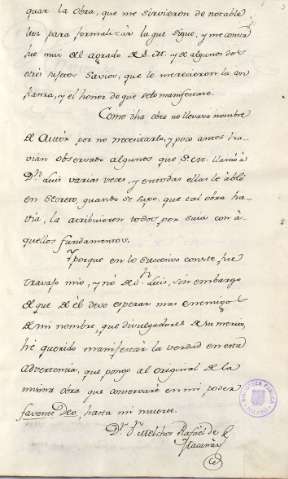 quar la obra, que me sirvieron de notable
luz para formalizar la que sigue, y me consta
fue muy del agrado de S. M. y de algunos dos
otros sujetos savios, que le merecieron la con
fianza, y el honor de que se lo manifestase.
Como dha obra no llevava nombre
de Autor por no necesitarlo, y poco antes ha-
vian observado algunos que S. M. llamó á
Dn. Luis varias veces, y en todas ellas le abló
en secreto, quando se supo, que tal obra ha-
via, la atribuieron todos por suia con á-
quellos fundamentos.
Y porque en lo sucesivo conste fue
travajo mio, y nó de Dn. Luis, sin embargo
de que de él devo esperar mas enemigos
de mi nombre, que divulgadores de su merito,
hé querido manifestar la verdad en esta
Advertencia, que pongo al original de la
misma obra que conservaré en mi poder
favente Deo, hasta mi muerte.
Dn. Melchor Rafael de
Macanáz